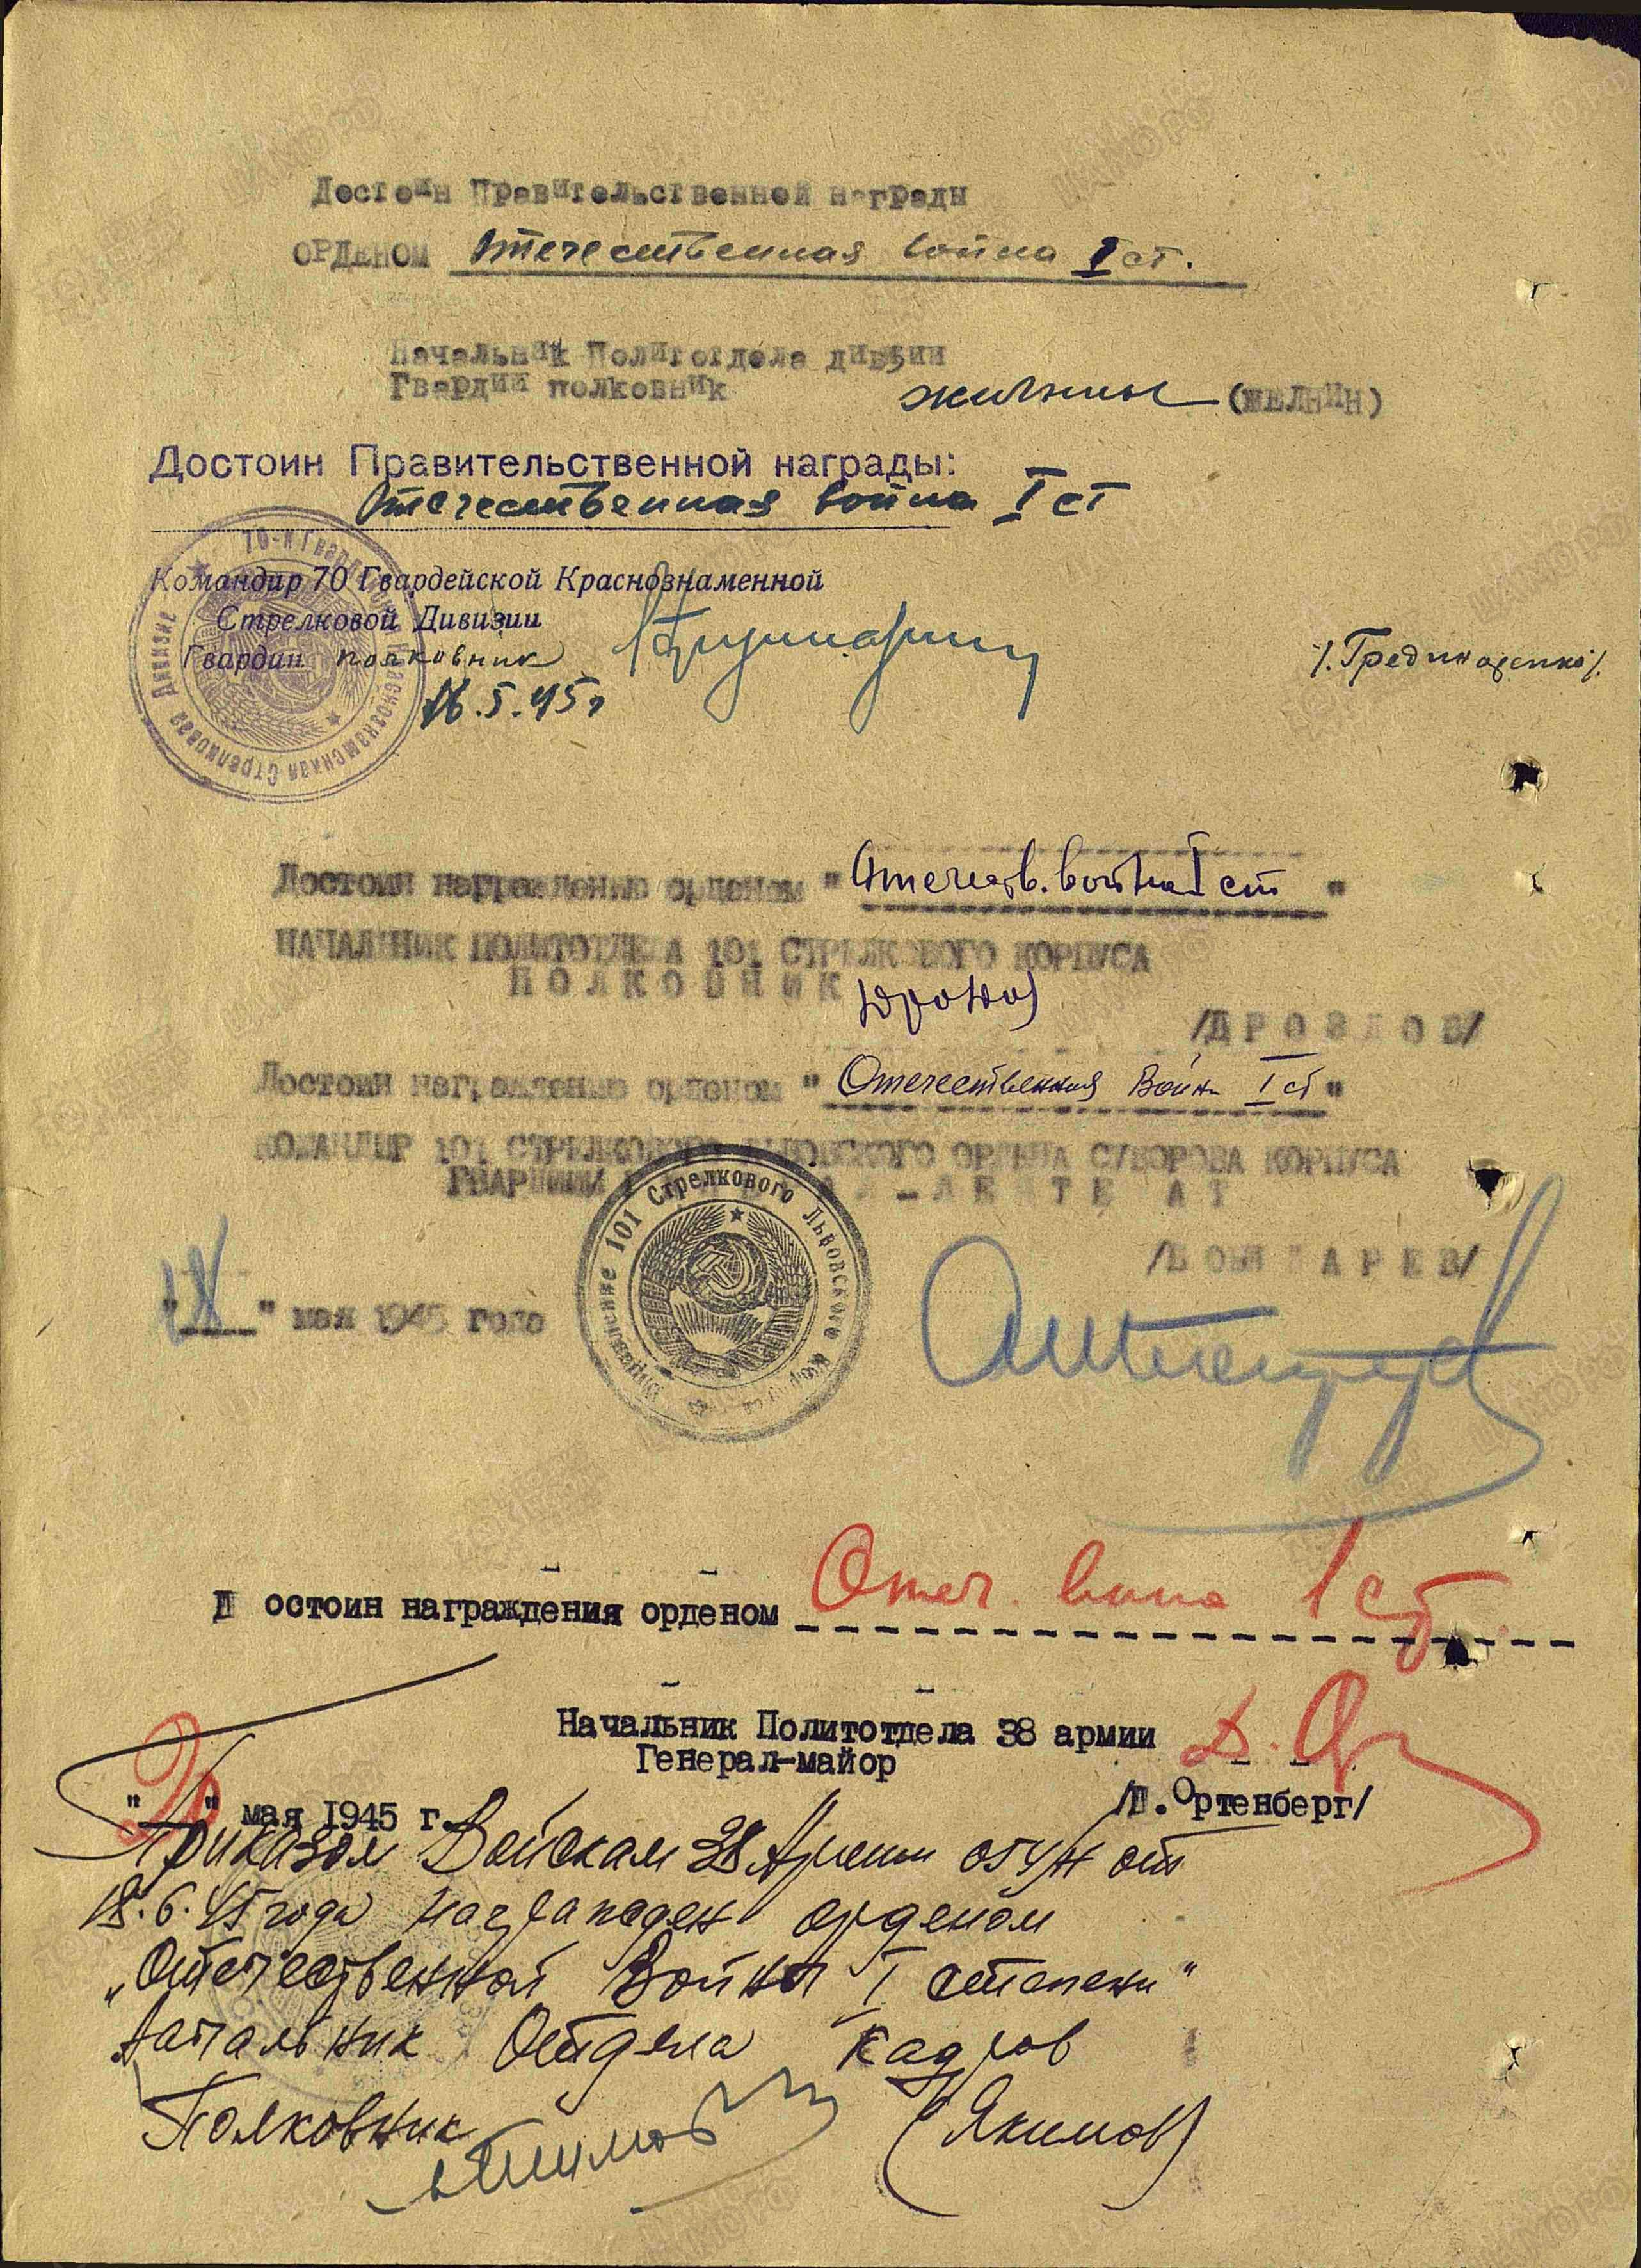 Достоин Правительственной награды
ОРДЕНОМ Отечественная война I ст.
Начальник Политотдела дивзии
Гвардии полковник (ЖЕЛНИН)
Достоин Правительственной награды:
Отечественная война I ст
Командир 70 Гвардейской Краснознаменной
Стрелковой Дивизии
Гвардии полковник
16.5.45г /.Гредин
Достоин награждению орденом "Отечеств. война I ст"
НАЧАЛЬНИК ПОЛИТОТДЕЛА 101 СТРЕЛКОВОГО КОРПУСА
ПОЛКОВНИК
/ДРОЗДОВ/
Достоин награждению орденом "Отечественная Война I ст"
КОМАНДИР 101 СТРЕЛКОВОГО ЛЬВОВСКОГО ОРДЕНА СУВОРОВА КОРПУСА
ГВАРДИИ
101 Стрелкового Львовского
/БОНДАРЕВ/
" мая 1945 года
Достоин награждения орденом Отеч. война 1 ст
Начальник Политотдела 38 армии
Генерал-майор
/Д.Ортенберг/
" " мая 1945 г.
Приказом Войскам 38 Армии 054/н от
18.6.45 года награжден орденом
„Отечественной Войны I степени"
Начальник Отдела кадров
Полковник (Якимов)